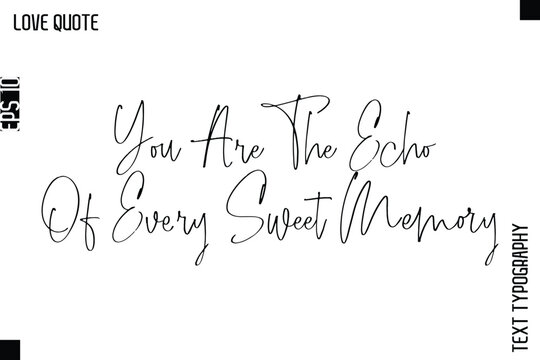 LOVE QUOTE
EPS 10
You Are The Echo
Of Every Sweet Memory
TEXT TYPOGRAPHY